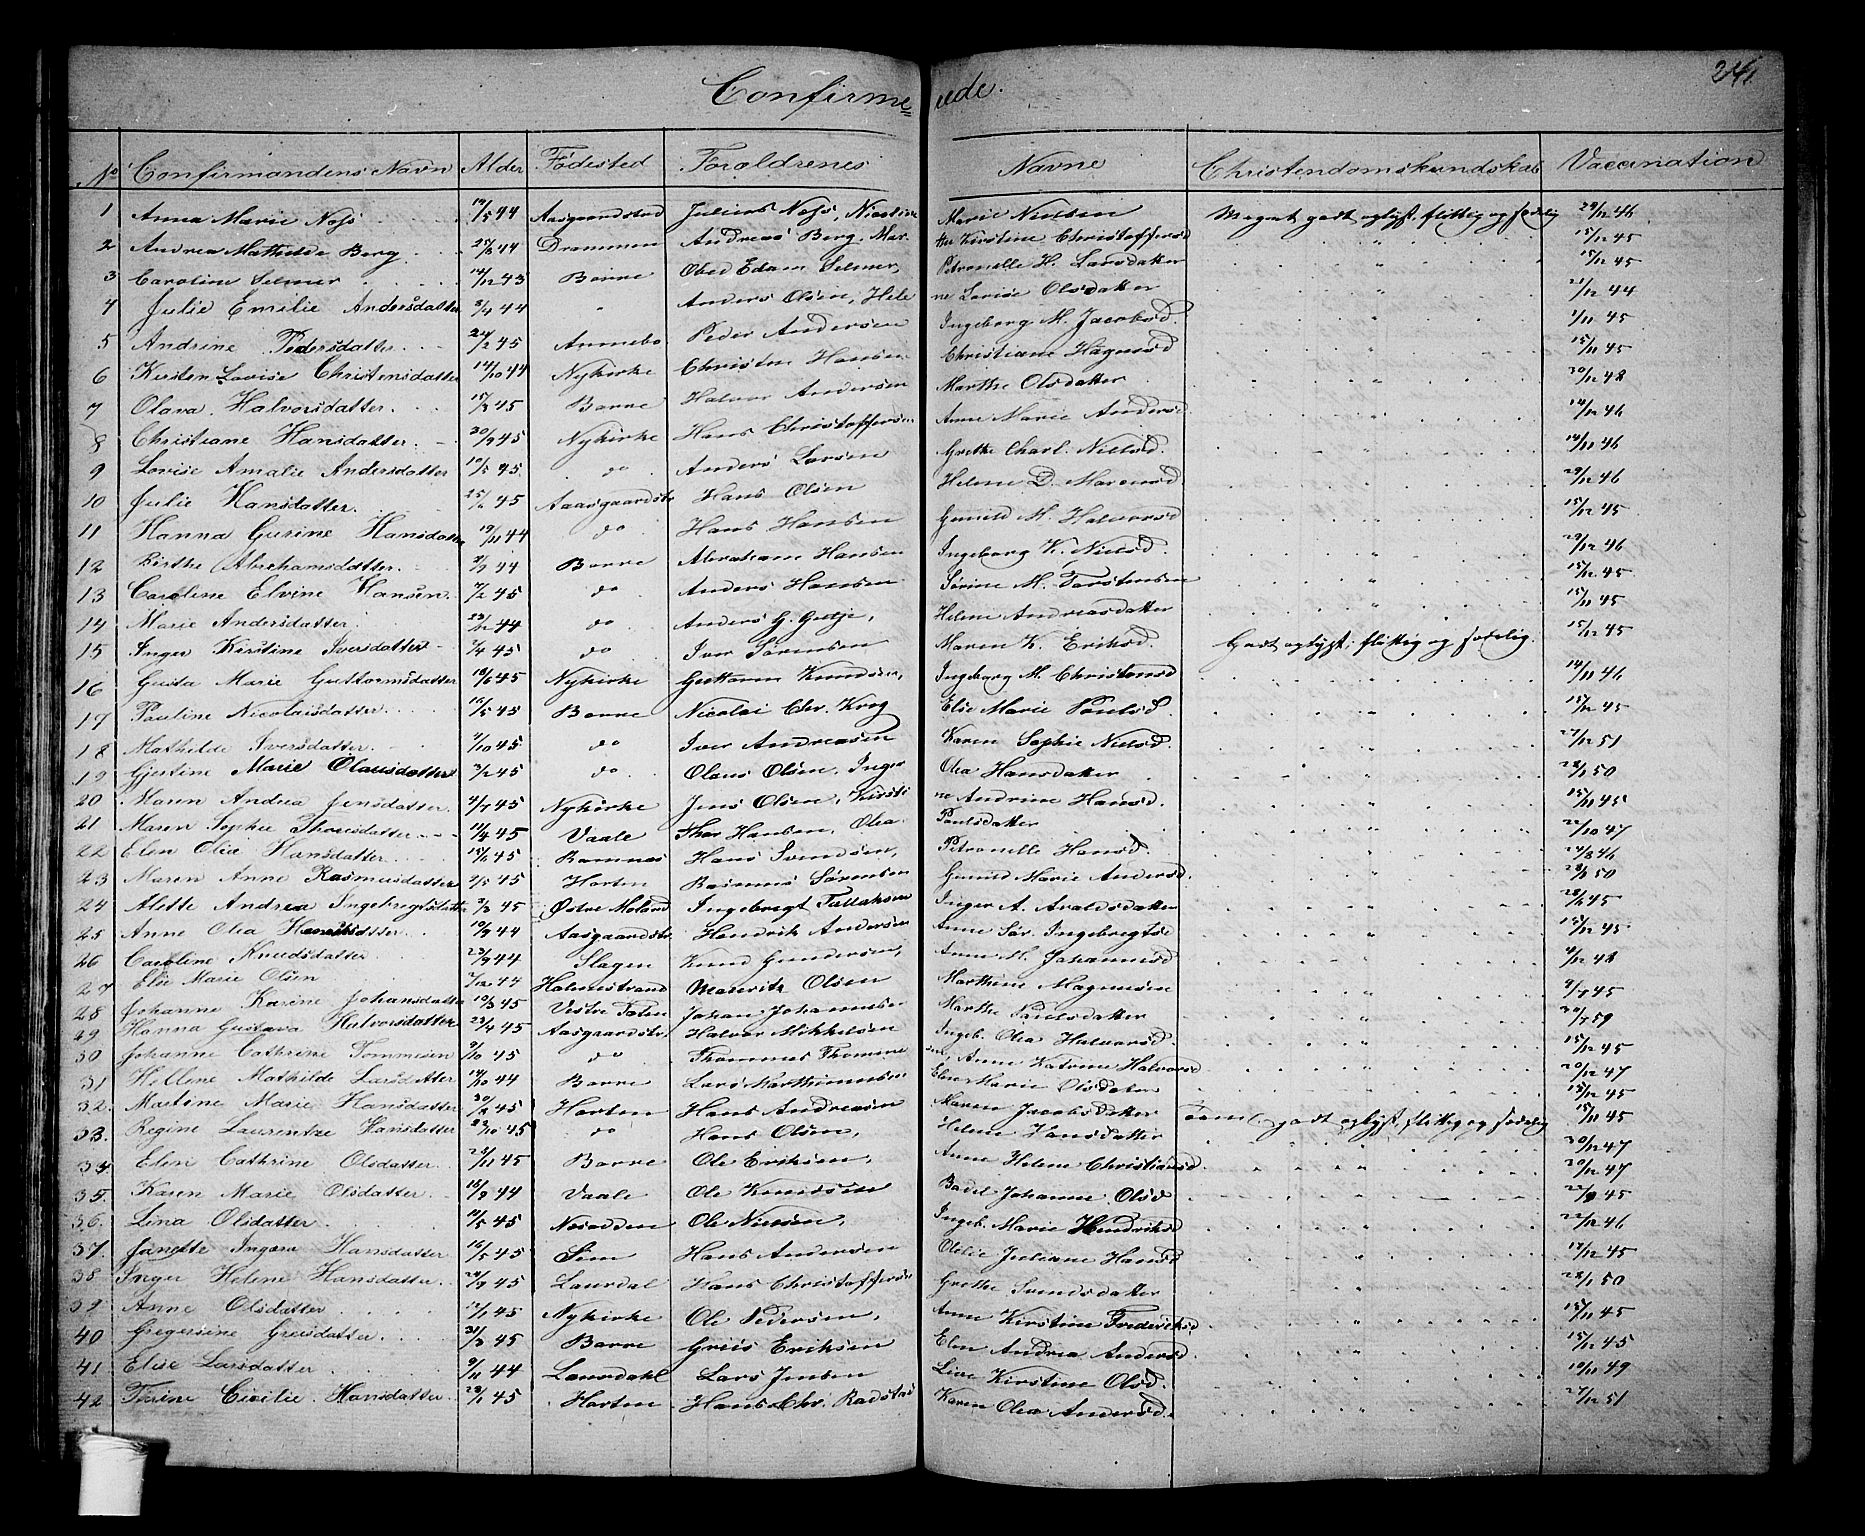 Confirmerede. 241
No Confirmandens Navn Alder Fødested Forældrenes Navne Christendomskundskab Vaccination
1 Anna Marie Næss 14/5 44 Aasgaardstrd Julius Næss, Nicoline Marie Nielsen Meget godt oplyst, flittig og sædelig 29/12 46
2 Andrea Mathilde Berg 27/8 44 Drammen Andreas Berg, Marthe Kirstine Christoffersd " 15/12 45
3 Caroline Selmer 14/12 43 Borre Obed Edam Selmer, Petronelle H. Larsdatter " 15/12 45
4 Julie Emilie Andersdatter 2/9 44 " Anders Olsen, Helene Lovise Olsdatter " 21/12 44
5 Andrine Pedersdatter 24/2 45 Annebo Peder Andersen Ingeborg M. Jacobsd. " 1/11 45
6 Kirsten Lovise Christensdatter 14/10 44 Nykirke Christen Hansen Christiane Hagensd " 15/11 45
7 Olava Halvorsdatter 15/3 45 Borre Halvor Andersen Marthe Olsdatter " 20/12 48
8 Christiane Hansdatter 20/9 45 Nykirke Hans Christoffersen Anne Marie Andersd " 14/12 46
9 Lovise Amalie Andersdatter 19/5 45 do Anders Larsen Grethe Charl. Nielsd. " 14/11 46
10 Julie Hansdatter Aaasgaardstr Hans Olsen Helene D. Marensd " 29/12 46
11 Hanna Gurine Hansdatter 19/11 44 do Hans Hansen Gunild M. Halvorsd " 15/12 45
12 Birthe Abrahamsdatter 44 Borre Abraham Hansen Ingeborg K. Nielsd. " 29/12 46
13 Caroline Elvine Hansen 7/2 45 do Anders Hansen Sörine M. Torstensen " 15/12 45
14 Marie Andersdatter 23/12 44 do Anders G. Gutje, Helene Andreasdatter " 15/11 45
15 Inger Kirstine Iversdatter 7/4 45 do Iver Sørensen Maren K. Eriksd. Godt oplyst, flittig og sædelig. 15/12 45
16 Gusta Marie Guttormsdatter 19/6 45 Nykirke Guttorm Knudsen, Ingeborg M. Christensd " 14/11 46
17 Pauline Nicolaisdatter 16/5 45 Borre Nicolai Chr. Krog Elise Marie Paulsd. " 15/12 45
18 Mathilde Iversdatter 7/10 45 do Iver Andreasen Karen Sophie Nielsd. " 27/12 51
19 Gjertine Marie Olausdatter 3/2 45 do Olaus Olsen, Inger Olea Hansdatter " 28/1 50
20 Maren Andrea Jensdatter 4/7 45 Nykirke Jens Olsen, Kirstine Andrine Hansd. " 15/11 45
21 Maren Sophie Thorsdatter 11/4 45 Vaale Thor Hansen, Olea Paulsdatter " 22/10 47
22 Elen Olea Hansdatter 15/6 45 Ramnæs Hans Svendsen, Petronelle Hansd. " 24/8 46
23 Maren Anne Rasmusdatter 2/5 45 Horten Rasmus Sørensen Gunild Marie Andersd. " 50
24 Alette Andrea Ingebregtsdatter 2/3 45 Østre Moland Ingebregt Tellefsen Inger A. Avaldsdatter " 45
25 Anne Olea Henriksdatter 19/9 44 Aasgaardstr. Hendrik Andersen Anne Sør. Ingebregtsd " 15/12 45
26 Caroline Knudsdatter 23/9 44 Slagen Knud Gundersen, Anne M. Johannesd " 4/12 48
27 Elise Marie Olsen 7/12 44 Holmestrand Mauritz Olsen Marthine Magnusen " 45
28 Johanne Karine Johansdatter 19/3 45 Vestre Toten Johan Johannesen Marthe Paulsdatter " 30/7 59
29 Hanna Gustava Halvorsdatter 23/4 45 Aasgaardstr. Halvor Mikkelsen Ingeb. Olea Halvorsd. " 15/12 45
30 Johanne Cathrine Tommesen 9/10 45 do Thommes Thommesen, Anne Katrine Halvorsd " 20/12 47
31 Hellene Mathilde Larsdatter 14/10 44 Borre Lars Marthinusen Elen Marie Olsdatter " 15/12 45
32. Martine Marie Hansdatter 45 Horten Hans Andreasen Maren Jacobsdatter Temmel. godt oplyst, flittig og sædelig 15/11 45
33. Regine Laurentze Hansdatter 22/10 45 do Hans Olsen, Helene Hansdatter " 30/12 47
34 Elen Cathrine Olsdatter 24/11 45 Borre Ole Eriksen, Anne Helene Christiansd. " 20/12 47
35. Karen Marie Olsdatter 16/9 44 Vaale Ole Knudsen Badel Johanne Olsd " 22/9 45
36. Lina Olsdatter 11/5 45 Næsodden Ole Nielsen, Ingeb. Marie Hendriksd " 22/12 46
37. Janette Ingara Hansdatter 16/5 45 Sem Hans Andersen Olelie Juliane Hansd " 17/12 45
38 Inger Helene Hansdatter 24/9 45 Laurdal Hans Christoffersen Grethe Svendsdatter " 28/1 50
39 Anne Olsdatter 12/1 45 Nykirke Ole Pedersen, Anne Kirstine Frederiksd " 15/11 45
40 Gregersine Greisdatter 31/3 45 Borre Greis Eriksen Elen Andrea Andersd " 15/12 45
41 Elise Larsdatter 9/11 44 Laurdahl Lars Jensen Live Kirstine Olsd. " 19/11 49
42 Thrine Cecilie Hansdatter 28/1 45 Horten Hans Chr. Radstad Karen Olea Andersd. " 27/12 51